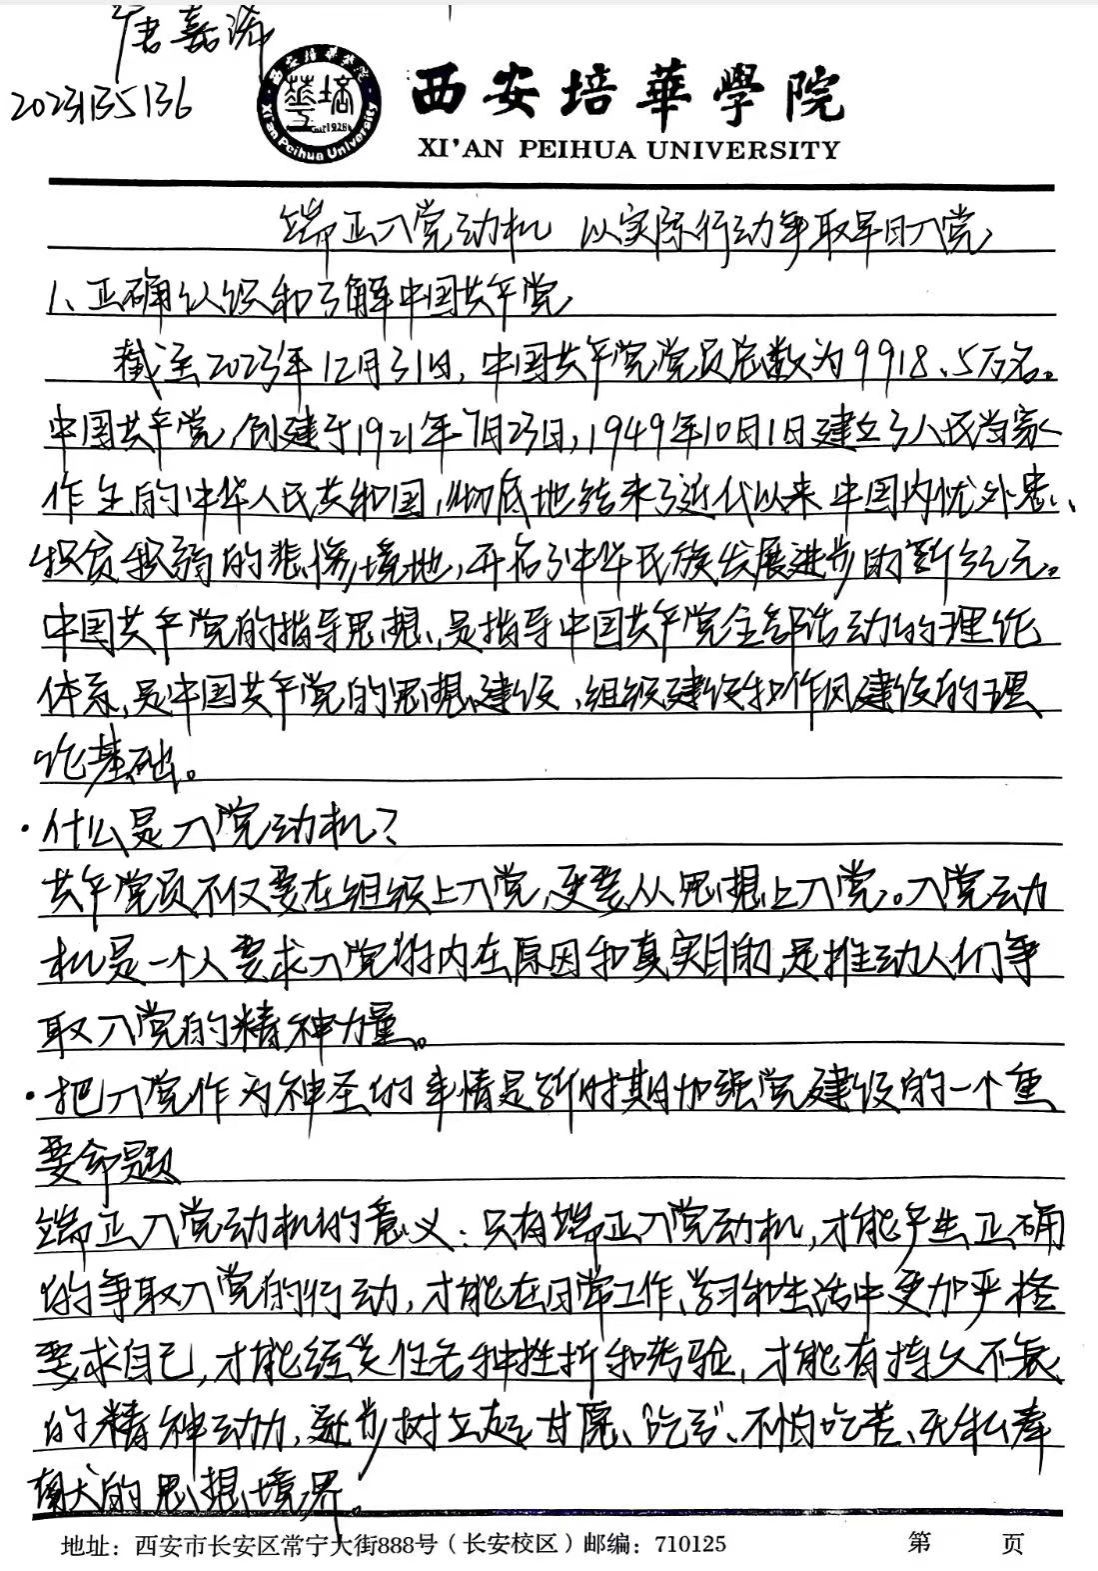 唐嘉流
2023135136
西安培華學院
XI'AN PEIHUA UNIVERSITY
西安培華学院
Xi'an Peihua University
1928
端正入党动机 以实际行动争取早日入党
1、正确认识和了解中国共产党
截至2023年12月31日,中国共产党党员总数为9918.5万名。
中国共产党,创建于1921年7月23日,1949年10月1日建立了人民当家
作主的中华人民共和国,彻底地结束了近代以来中国内忧外患、
积贫积弱的悲惨境地,开启了中华民族发展进步的新纪元。
中国共产党的指导思想,是指导中国共产党全部活动的理论
体系,是中国共产党的思想建设、组织建设和作风建设的理
论基础。
·什么是入党动机?
共产党员不仅要在组织上入党,更要从思想上入党。入党动
机是一个人要求入党的内在原因和真实目的,是推动人们争
取入党的精神力量。
·把入党作为神圣的事情是新时期加强党建设的一个重
要命题
端正入党动机的意义:只有端正入党动机,才能产生正确
的争取入党的行动,才能在日常工作、学习和生活中更加严格
要求自己,才能经受住各种挫折和考验,才能有持久不衰
的精神动力,逐步树立起甘愿“吃亏”、不怕吃苦、无私奉
献的思想境界。
地址:西安市长安区常宁大街888号(长安校区)邮编:710125
第 页